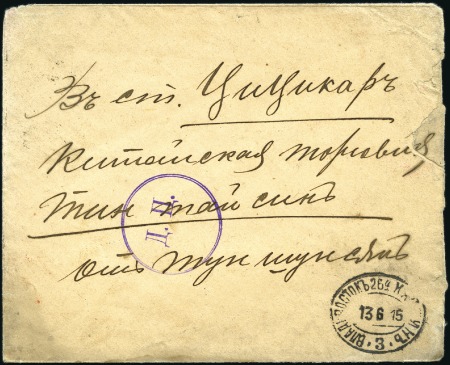 Въ ст. Цицикаръ
Китайская торговля
Тин тай синъ
Д. Ц.
отъ Тун шун
ВЛАДИВОСТОКЪ
13 6 15
3